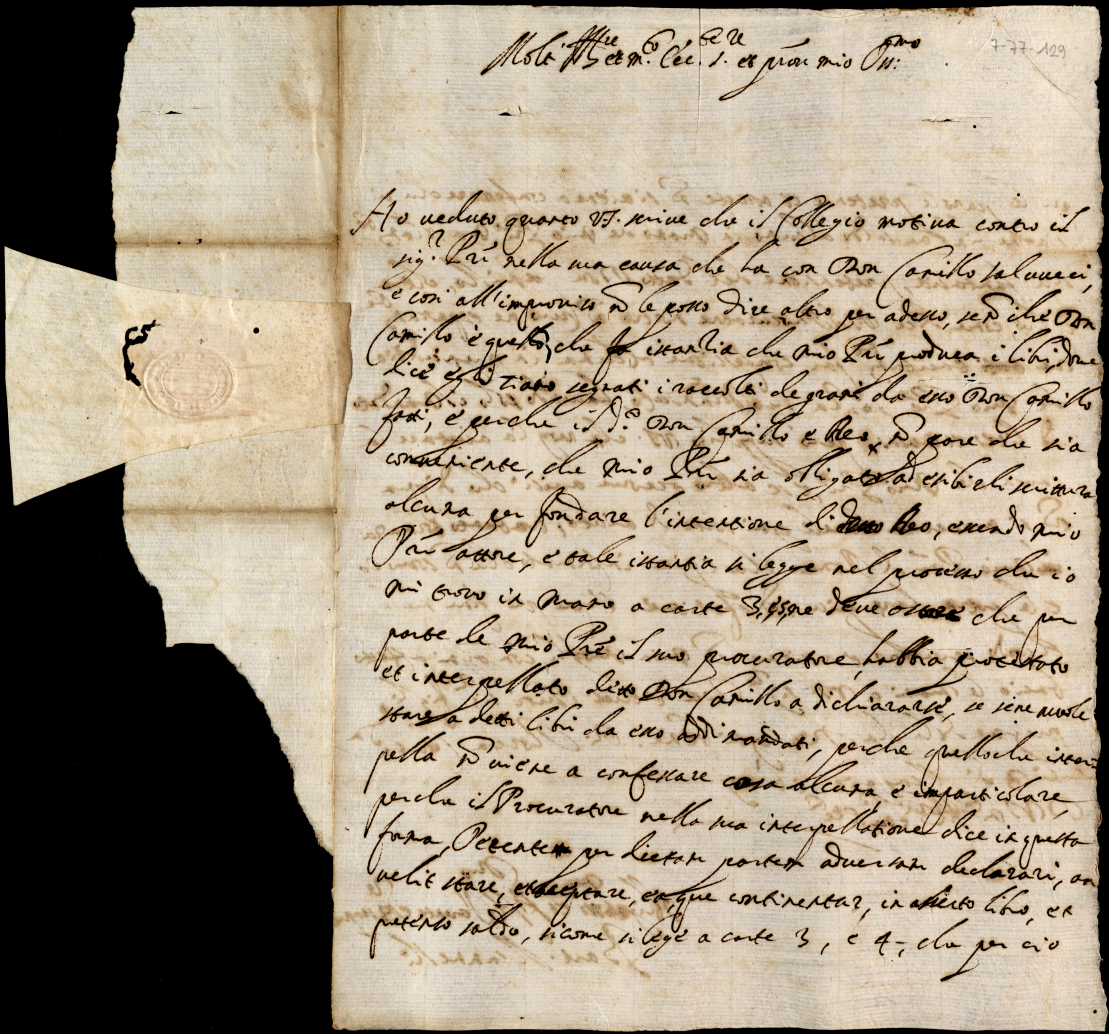 7-77-129
Molt Ill:re et m:to Ecc:te s:re et pron mio Oss:mo
Ho veduto quanto VS. scrive che il Collegio motiva contro il
sig:r Prē nella sua causa che ha con Don Camillo salvucci,
e cosi all'improviso nō le posso dire altro per adesso, se nō che Don
Camillo è quello, che fa istantia che mio Prē produca i libri, dove
dice egli siano segnati i raccolti de grani da esso Don Camillo
fatti, e perche il d:o Don Camillo e Reo, nō pare che sia
conveniente, che mio Prē sia obligato ad esibirli scrittura
alcuna per fondare l'intentione di detto Reo, essendo mio
Prē attore, e tale istantia si legge nel processo che io
mi trovo in mano a carte 3, ne deve ostare che per
parte de mio Prē il suo procuratore, habbia protestato
et interpellato detto Don Camillo a dichiararse, se se ne vuole
stare a detti libri da esso addimandati, perche quello che inter
pella nō viene a confessare cosa alcuna, e in particolare,
perche il Procuratore nella sua interpellatione dice in questa
forma, Petente per dictam partem adversam declarari, an
velit stare, et acceptare, ea que continentur, in asserto libro, et
petenso saldo, sicome si lege a carte 3, e 4, che per cio